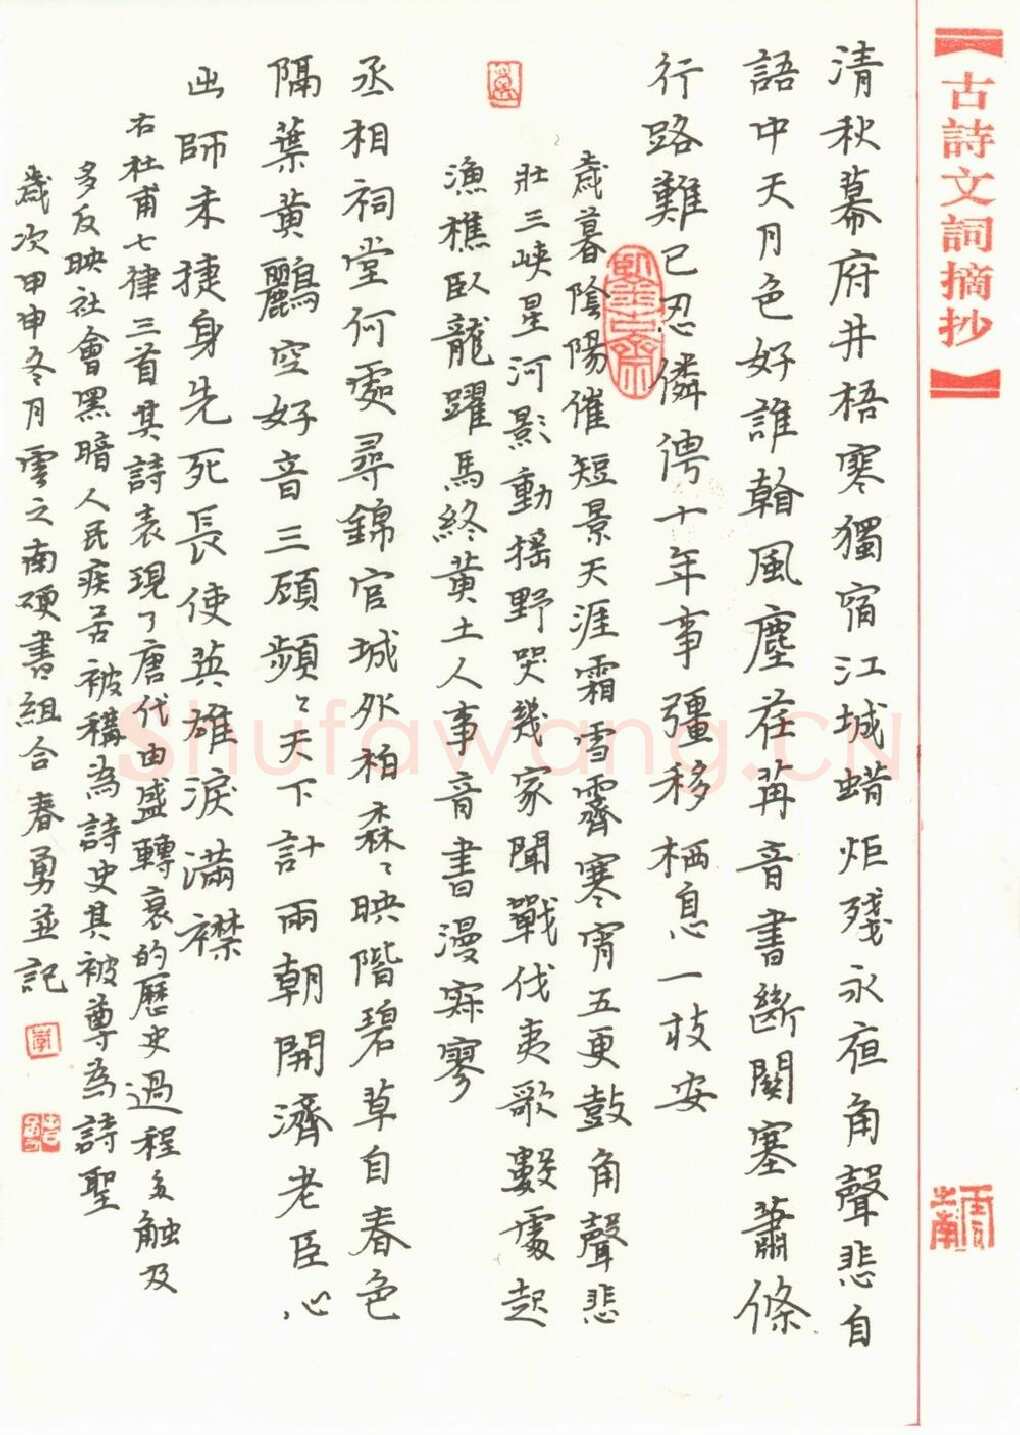 【古詩文詞摘抄】
清秋幕府井梧寒獨宿江城蜡炬殘永夜角聲悲自
語中天月色好誰翰風塵荏苒音書斷關塞蕭條
行路難已忍俜十年事彊移栖息一枝安
歲暮陰陽催短景天涯霜雪霽寒宵五更鼓角聲悲
壯三峽星河影動搖野哭幾家聞戰伐夷歌數處起
漁樵臥龍躍馬終黃土人事音書漫寂寥
丞相祠堂何處尋錦官城外柏森〻映階碧草自春色
隔葉黃鸝空好音三顧頻〻天下計兩朝開濟老臣心
出師未捷身先死長使英雄淚滿襟
右杜甫七律三首其詩表現了唐代由盛轉衰的歷史過程多触及
多反映社會黑暗人民疾苦被稱為詩史其被尊為詩聖
歲次甲申冬月雲之南硬書組合春勇並記
雲之南
Shufawang.CN